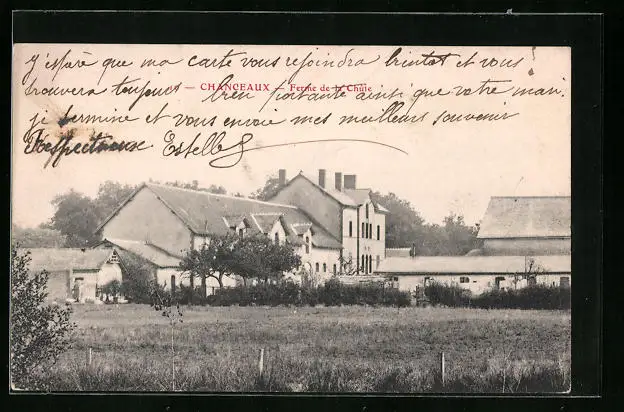 J'espère que ma carte vous rejoindra bientot et vous
trouvera toujours bien portante ainsi que votre mari.
CHANCEAUX — Ferme de la Chuie
je termine et vous envoie mes meilleurs souvenir
Respectueuse Estelle